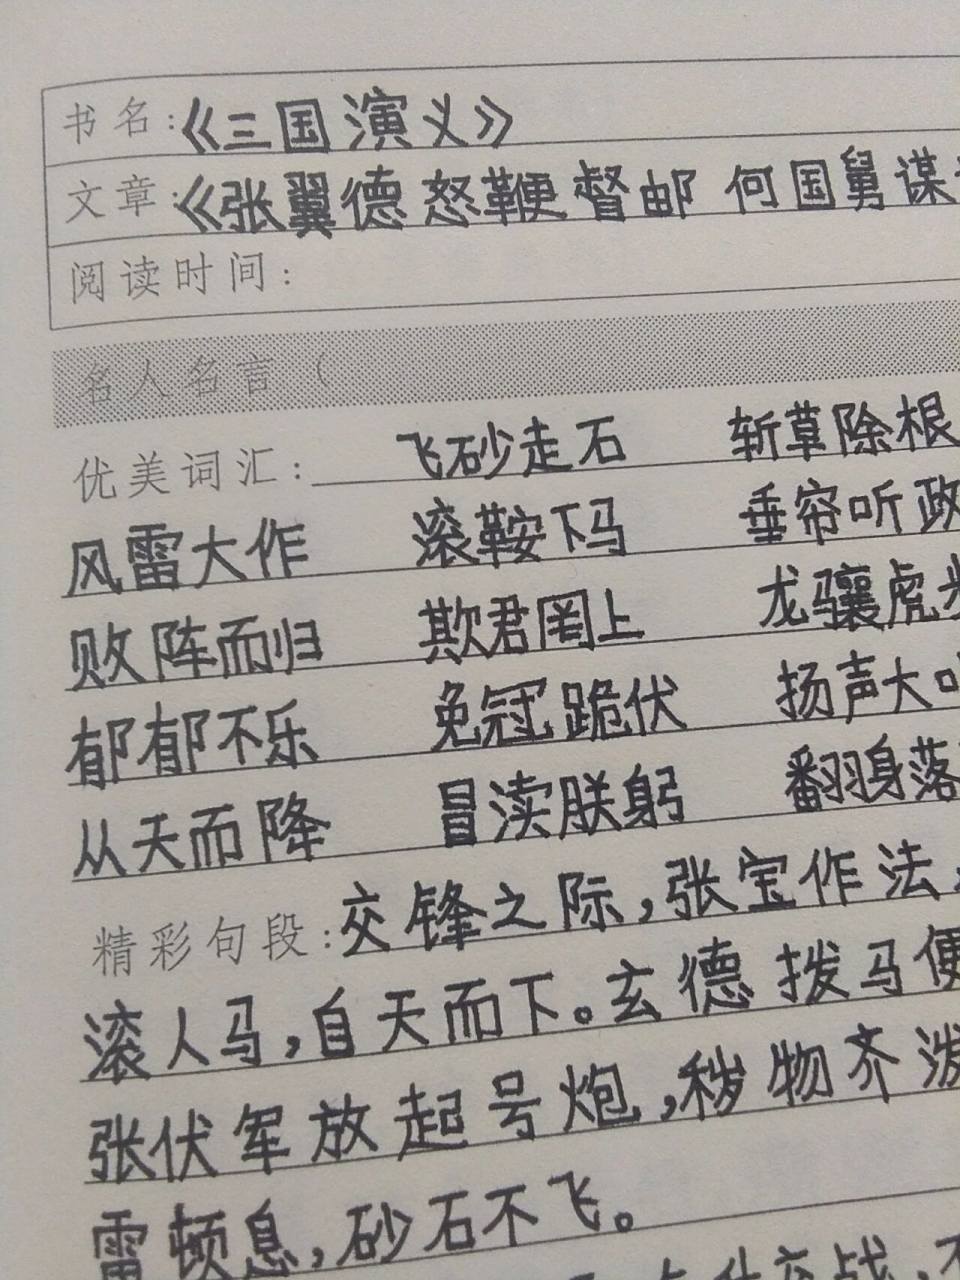 书名:《三国演义》
文章:《张翼德怒鞭督邮 何国舅谋
阅读时间:
名人名言(
优美词汇: 飞砂走石 斩草除根
风雷大作 滚鞍下马 垂帘听政
败阵而归 欺君罔上 龙骧虎步
郁郁不乐 免冠跣伏 扬声大叫
从天而降 冒渎朕躬 翻身落
精彩句段:交锋之际,张宝作法,
滚人马,自天而下。玄德拨马便
张伏军放起号炮,秽物齐泼
雷顿息,砂石不飞。
交战,不